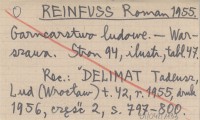 O REINFUSS Roman, 1955.
Garncarstwo ludowe. — War-
szawa. Stron 94, ilustr., tabl. 47.
Rec.: "DELIMAT Tadeusz,
Lud (Wrocław) t. 42, r. 1955, druk
1956, część 2, s. 797-800.